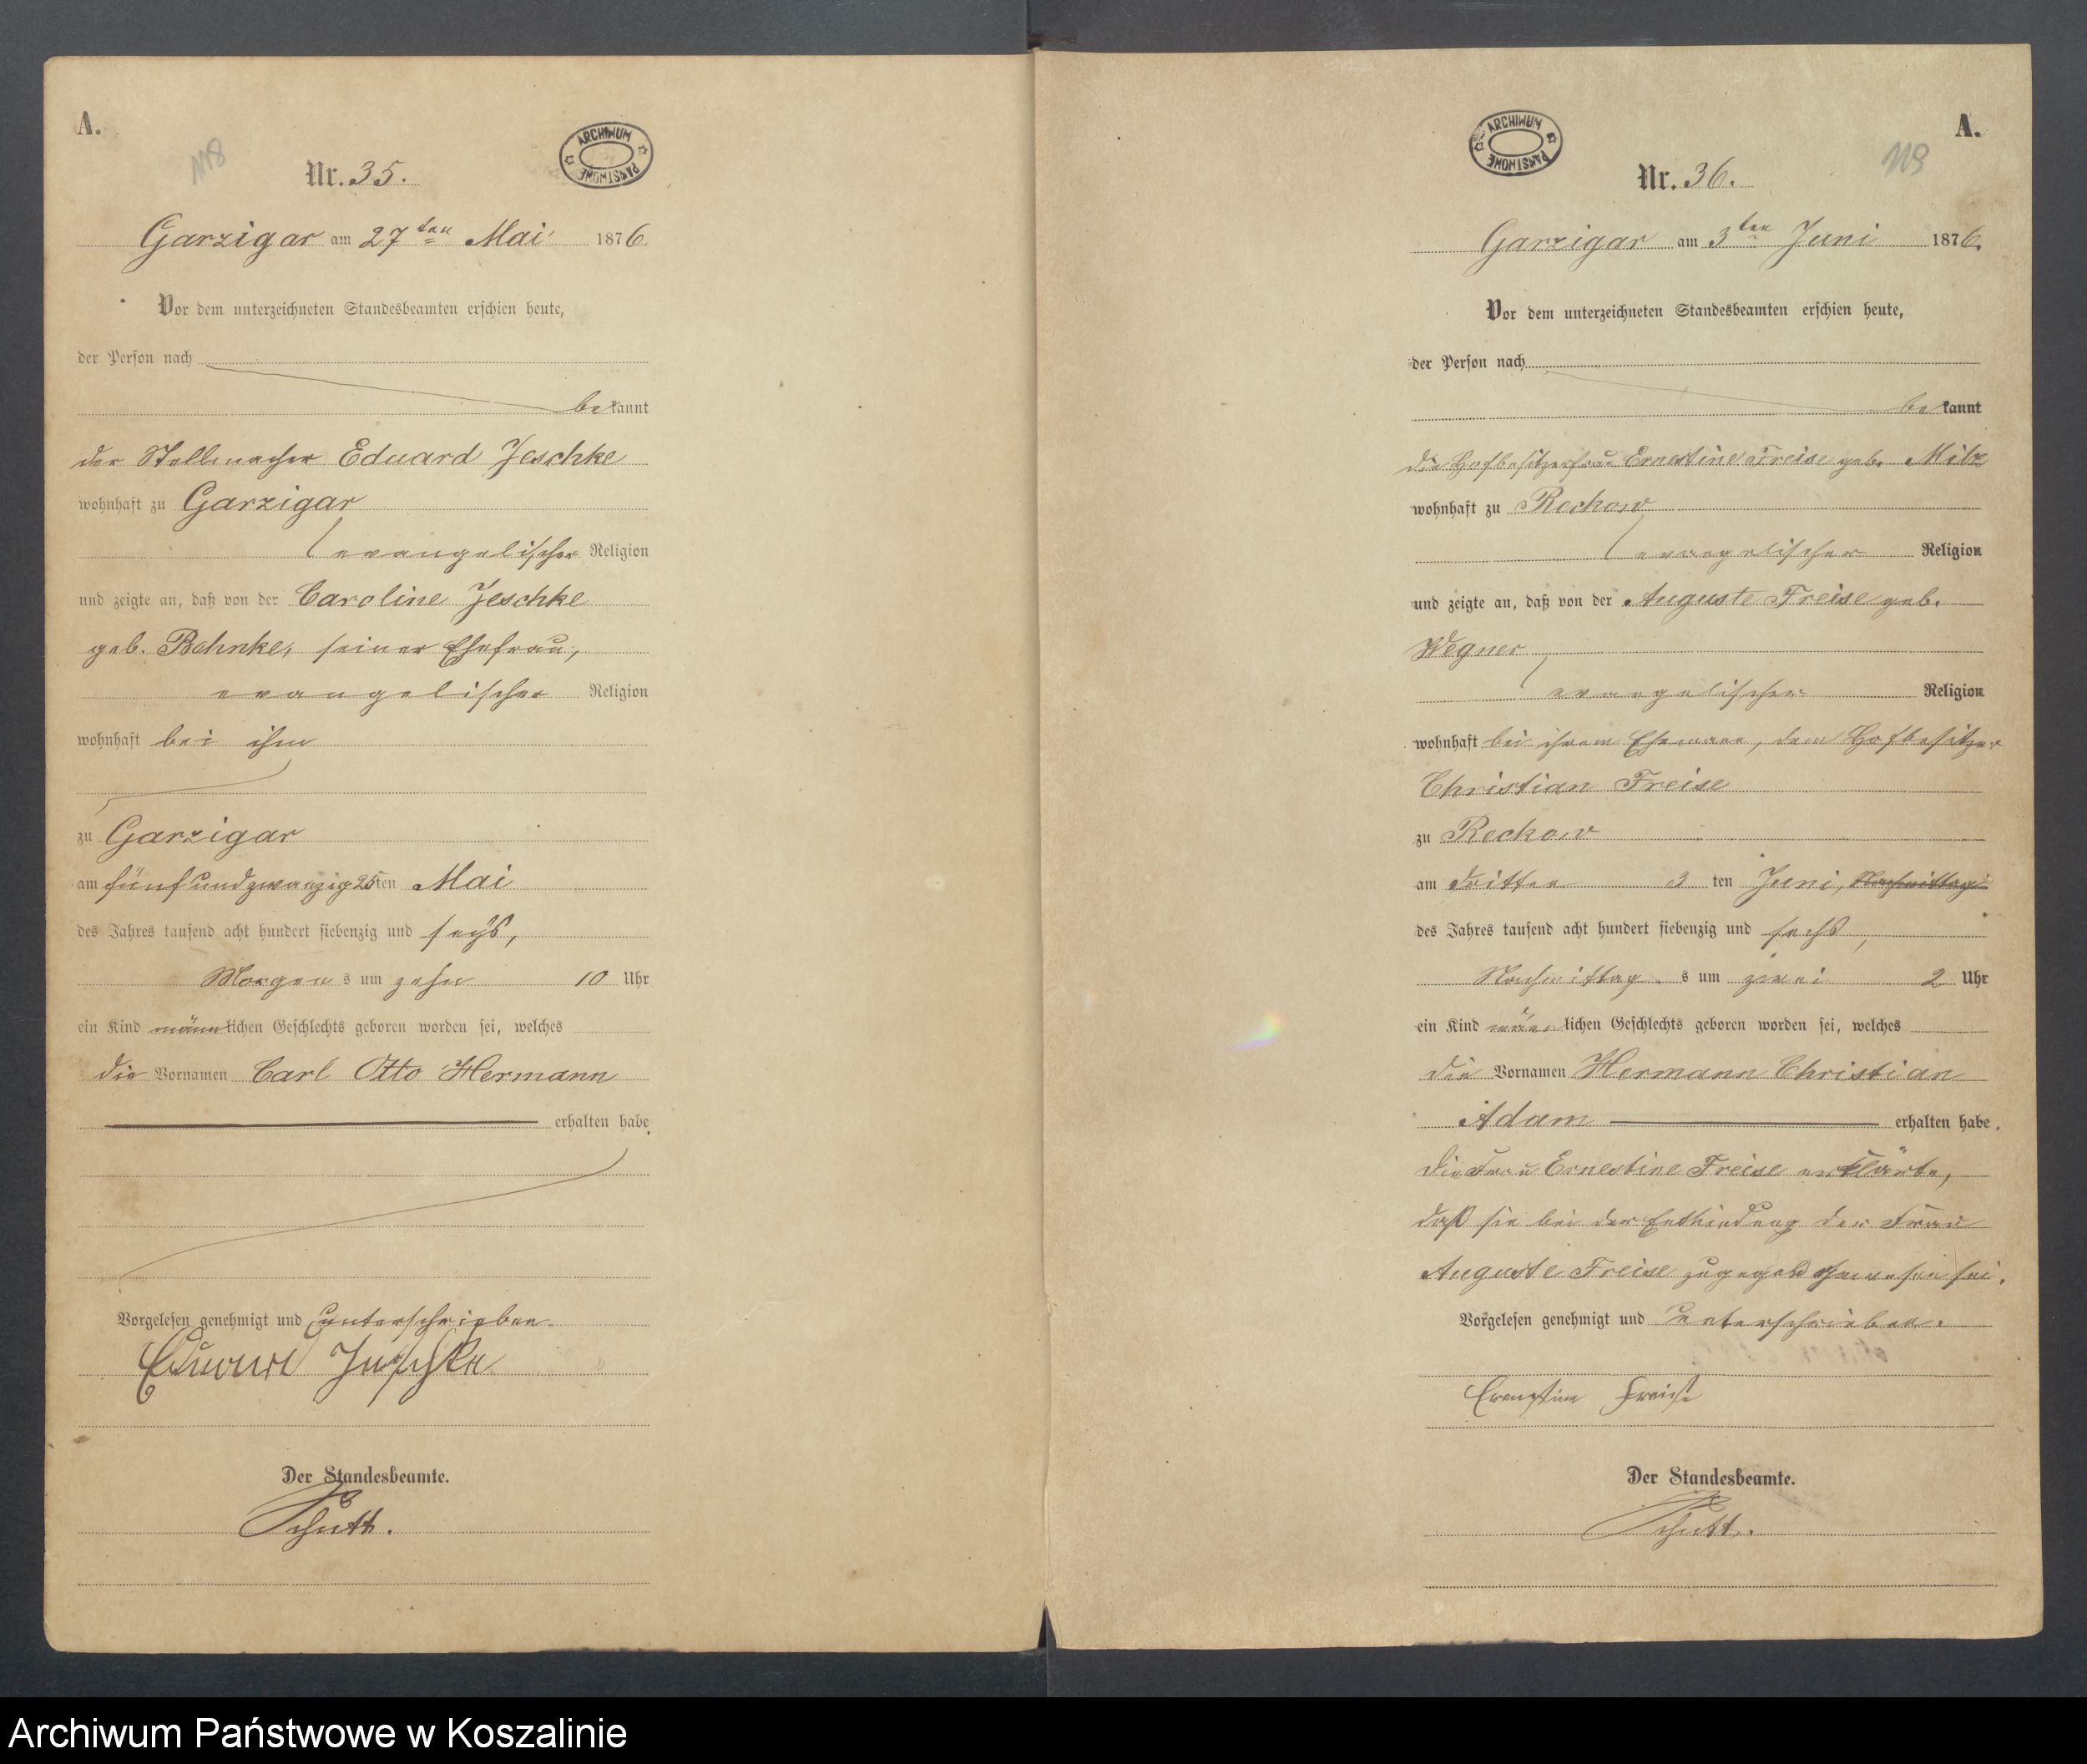 A.
118
Nr. 35.
ARCHIWUM PAŃSTWOWE
Garzigar am 27ten Mai 1876.
Vor dem unterzeichneten Standesbeamten erschien heute,
der Person nach
bekannt
der Stellmacher Eduard Jeschke
wohnhaft zu Garzigar
evangelischer Religion
und zeigte an, daß von der Caroline Jeschke
geb. Behnke, seiner Ehefrau,
evangelischer Religion
wohnhaft bei ihm
zu Garzigar
am fünfundzwanzig 25ten Mai
des Jahres tausend acht hundert siebenzig und sechs,
Morgens um zehn 10 Uhr
ein Kind männlichen Geschlechts geboren worden sei, welches
die Vornamen Carl Otto Hermann
erhalten habe.
Vorgelesen genehmigt und unterschrieben
Eduard Jeschke
Der Standesbeamte.
Schutt.
A.
119
Nr. 36.
ARCHIWUM PAŃSTWOWE
Garzigar am 3ten Juni 1876.
Vor dem unterzeichneten Standesbeamten erschien heute,
der Person nach
bekannt
die Hofbesitzerfrau Ernestine Freise geb. Milz
wohnhaft zu Reckow
evangelischer Religion
und zeigte an, daß von der Auguste Freise geb.
Wegner
evangelischer Religion
wohnhaft bei ihrem Ehemann, dem Hofbesitzer
Christian Freise
zu Reckow
am dritten 3 ten Juni, Nachmittag
des Jahres tausend acht hundert siebenzig und sechs,
Nachmittags um zwei 2 Uhr
ein Kind männlichen Geschlechts geboren worden sei, welches
die Vornamen Hermann Christian
Adam erhalten habe.
Die Frau Ernestine Freise erklärte,
daß sie bei der Entbindung der Frau
Auguste Freise zugegen gewesen sei.
Vorgelesen genehmigt und unterschrieben.
Ernestine Freise
Der Standesbeamte.
Schutt.
Archiwum Państwowe w Koszalinie